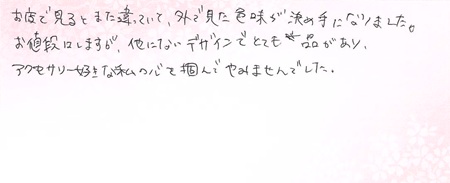 お店で見るとまた違っていて、外で見た色味が決め手になりました。
お値段はしますが、他にないデザインでとても品があり、
アクセサリー好きな私の心を掴んでやみませんでした。